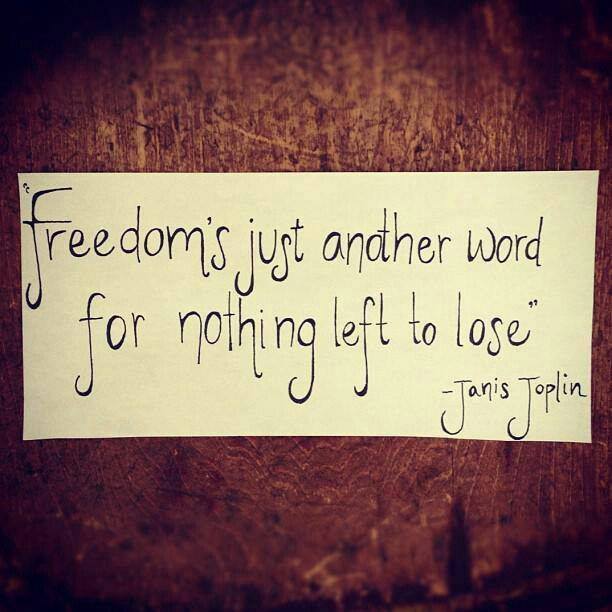 "Freedom's just another word
for nothing left to lose"
-Janis Joplin